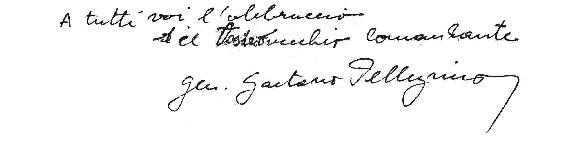 A tutti voi l'abbraccio
il vecchio comandante
gen. Gaetano Pellegrino